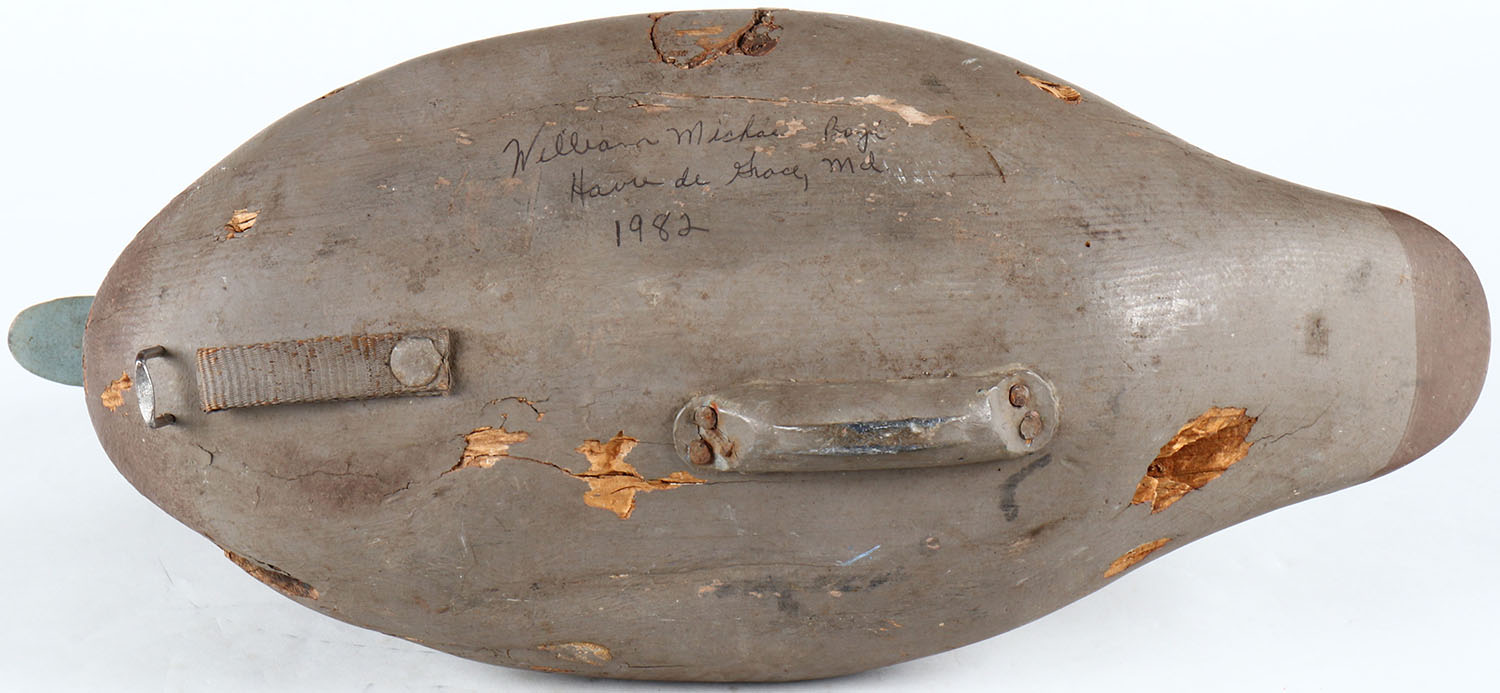 William Michael
Havre de Grace, Md
1982